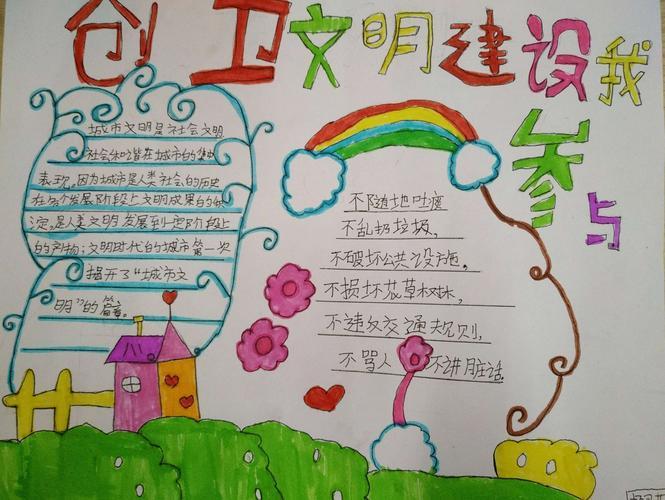 创卫文明建设我参与
城市文明是社会文明
社会和谐在城市的集中
表现。因为城市是人类社会的历史
在各个发展阶段上文明成果的
淀,是人类文明发展到一定阶段上
的产物:文明时代的城市第一次
揭开了“城市文
明”的篇章。
不随地吐痰
不乱扔垃圾,
不破坏公共设施。
不损坏花草树林,
不违反交通规则,
不骂人 不讲脏话.